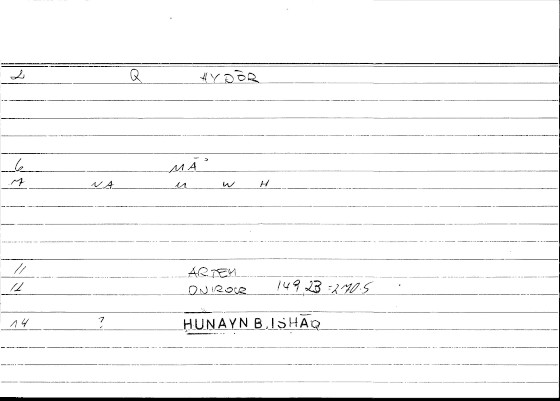 2 Q HYDŌR
6 MĀʾ
7 NA M W H
11 ARTEM
12 ONIROCR 149,23 = 270.5
14 ? HUNAYN B. ISHĀQ